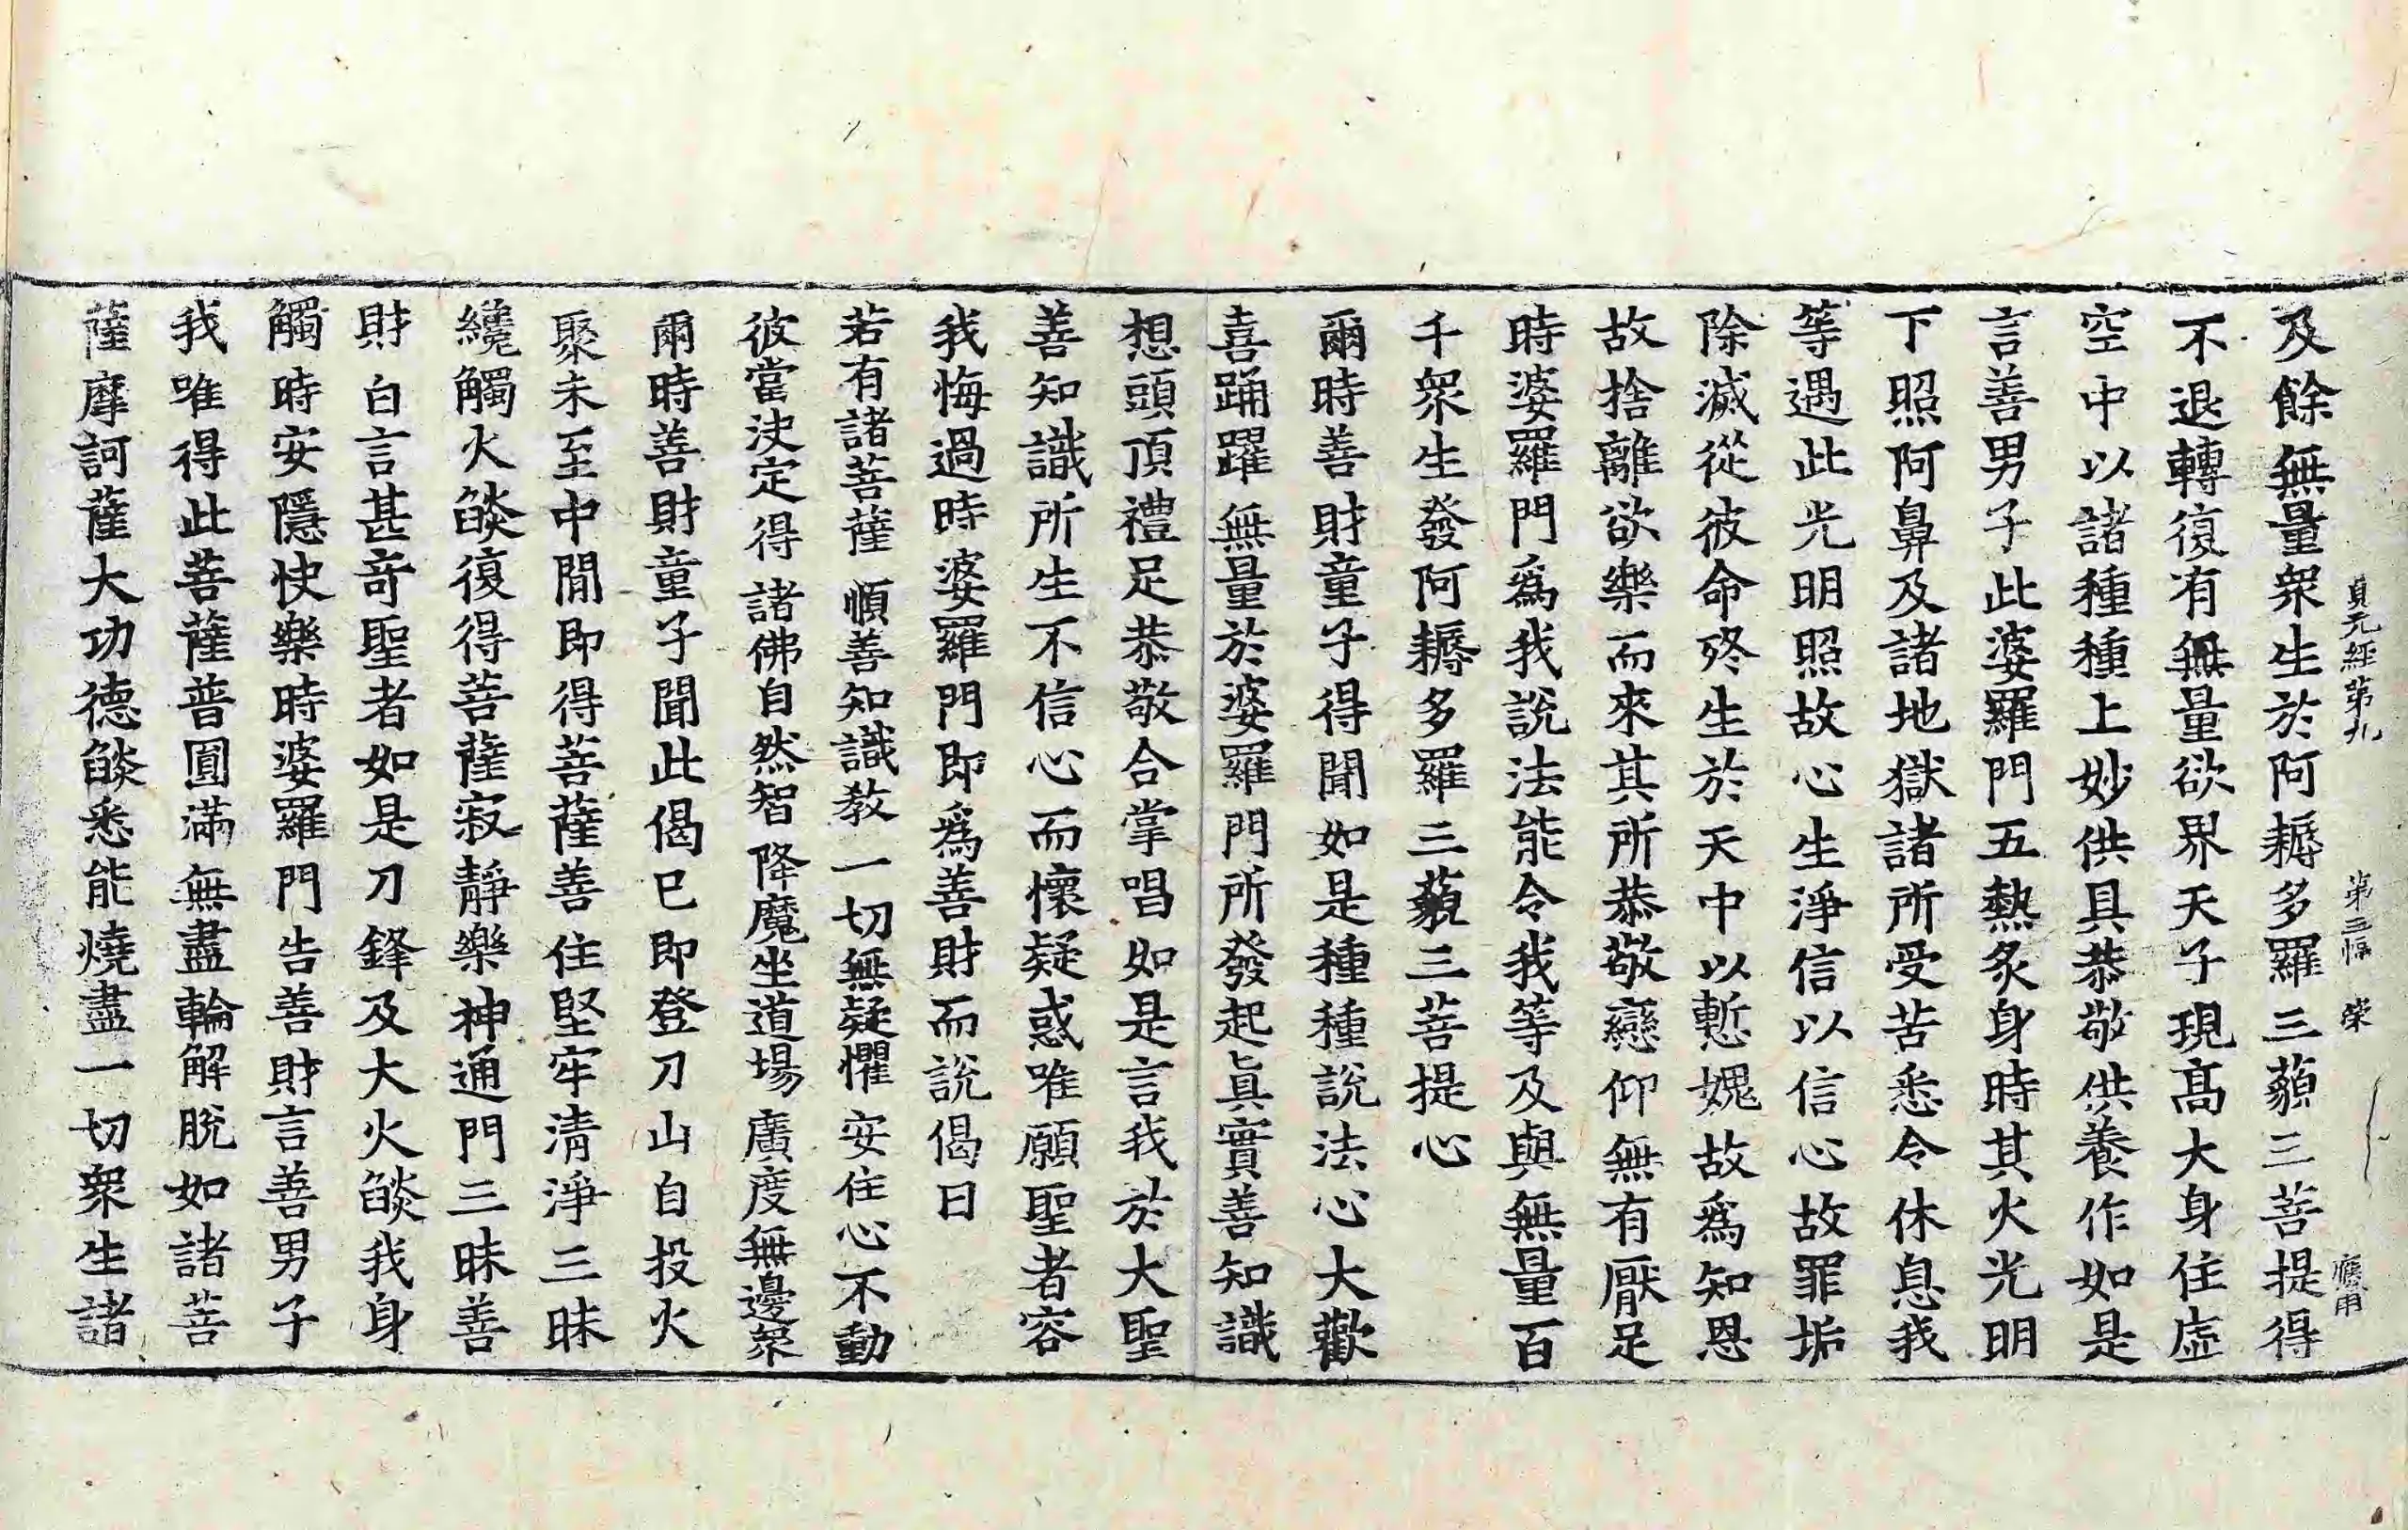 貞元經第九 第三幅 榮 應用
及餘無量衆生於阿耨多羅三藐三菩提得
不退轉復有無量欲界天子現髙大身住虛
空中以諸種種上妙供具恭敬供養作如是
言善男子此婆羅門五熱炙身時其火光明
下照阿鼻及諸地獄諸所受苦悉令休息我
等遇此光明照故心生淨信以信心故罪垢
除滅從彼命終生於天中以慙媿故爲知恩
故捨離欲樂而來其所恭敬戀仰無有厭足
時婆羅門爲我說法能令我等及與無量百
千衆生發阿耨多羅三藐三菩提心
爾時善財童子得聞如是種種說法心大歡
喜踊躍無量於婆羅門所發起眞實善知識
想頭頂禮足恭敬合掌唱如是言我於大聖
善知識所生不信心而懷疑惑唯願聖者容
我悔過時婆羅門即爲善財而說偈曰
若有諸菩薩 順善知識教 一切無疑懼 安住心不動
彼當決定得 諸佛自然智 降魔坐道場 廣度無邊衆
爾時善財童子聞此偈已即登刀山自投火
聚未至中閒即得菩薩善住堅牢清淨三昧
纔觸火燄復得菩薩寂靜樂神通門三昧善
財白言甚奇聖者如是刀鋒及大火燄我身
觸時安隱快樂時婆羅門告善財言善男子
我唯得此菩薩普圓滿無盡輪解脫如諸菩
薩摩訶薩大功德燄悉能燒盡一切衆生諸